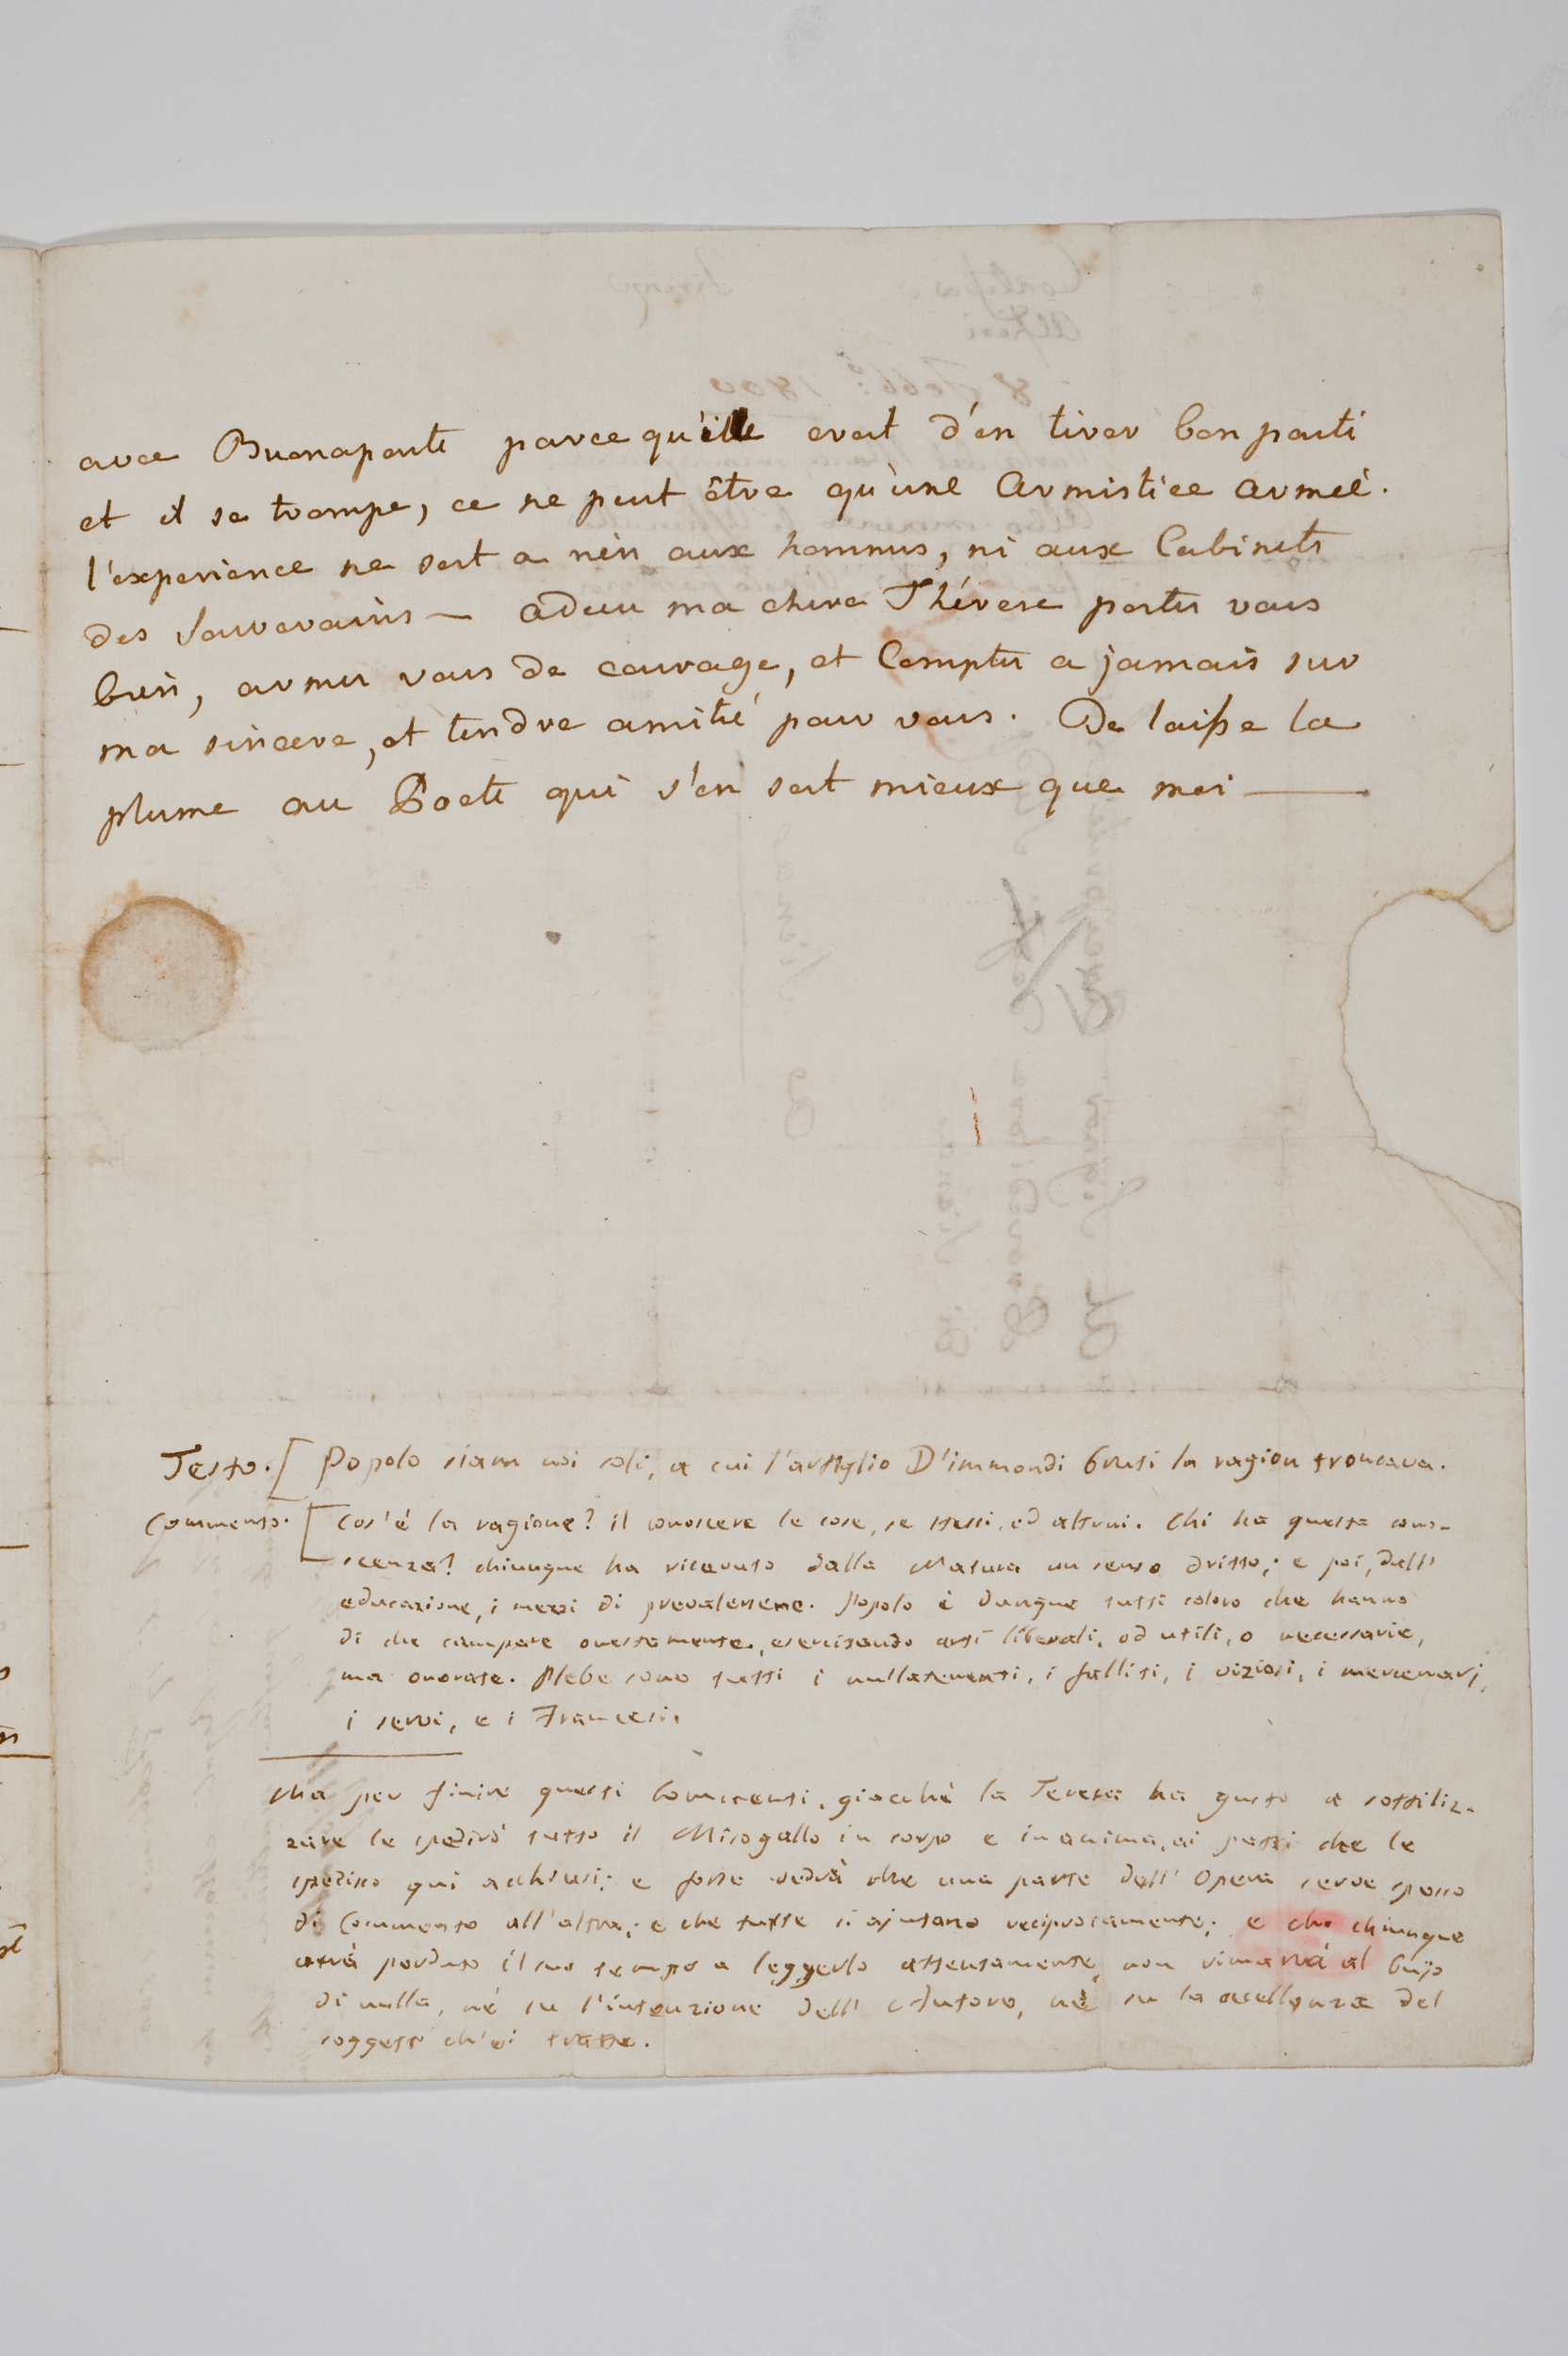 avec Buonaparte parce qu'ille croit d'en tirer bon parti
et il se trompe, ce ne peut être qu'une Armistice armeè.
l'experience ne sert a rien aux hommes, ni aux Cabinets
des Souverains — adieu ma chere Thérese portez vous
bien, armez vous de courage, et Comptez a jamais sur
ma sincere, et tendre amitié pour vous. Je laisse la
plume au Poete qui s'en sert mieux que moi —
Testo. [Popolo siam noi soli, a cui l'artiglio D'immondi bruti la ragion troncava.
Commento. [Cos'è la ragione? il conoscere le cose, se stessi, ed altrui. Chi ha questa cono-
scenza? chiunque ha ricevuto dalla Natura un senso dritto; e poi, dall'
educazione, i mezzi di prevalersene. Popolo è dunque tutti coloro che hanno
di che campare onestamente, esercitando arti liberali, od utili, o necessarie,
ma onorate. Plebe sono tutti i nullatenenti, i falliti, i viziosi, i mercenarj,
i servi, e i Francesi.
Ma per finire questi Comenti, giacchè la Teresa ha gusto a sottiliz-
zare le spedirò tutto il Misogallo in corpo e in anima, ai passi che le
spedisco qui acchiusi; e forse vedrà che una parte dell' Opera serve spesso
di Commento all'altra; e che tutte si ajutano reciprocamente; e che chiunque
avrà perduto il suo tempo a leggerlo attentamente, non rimarrà al bujo
di nulla, nè su l'intenzione dell' Autore, nè su la eccellenza del
soggetto ch'ei tratta.
8 Febb.º 1800
Alfieri